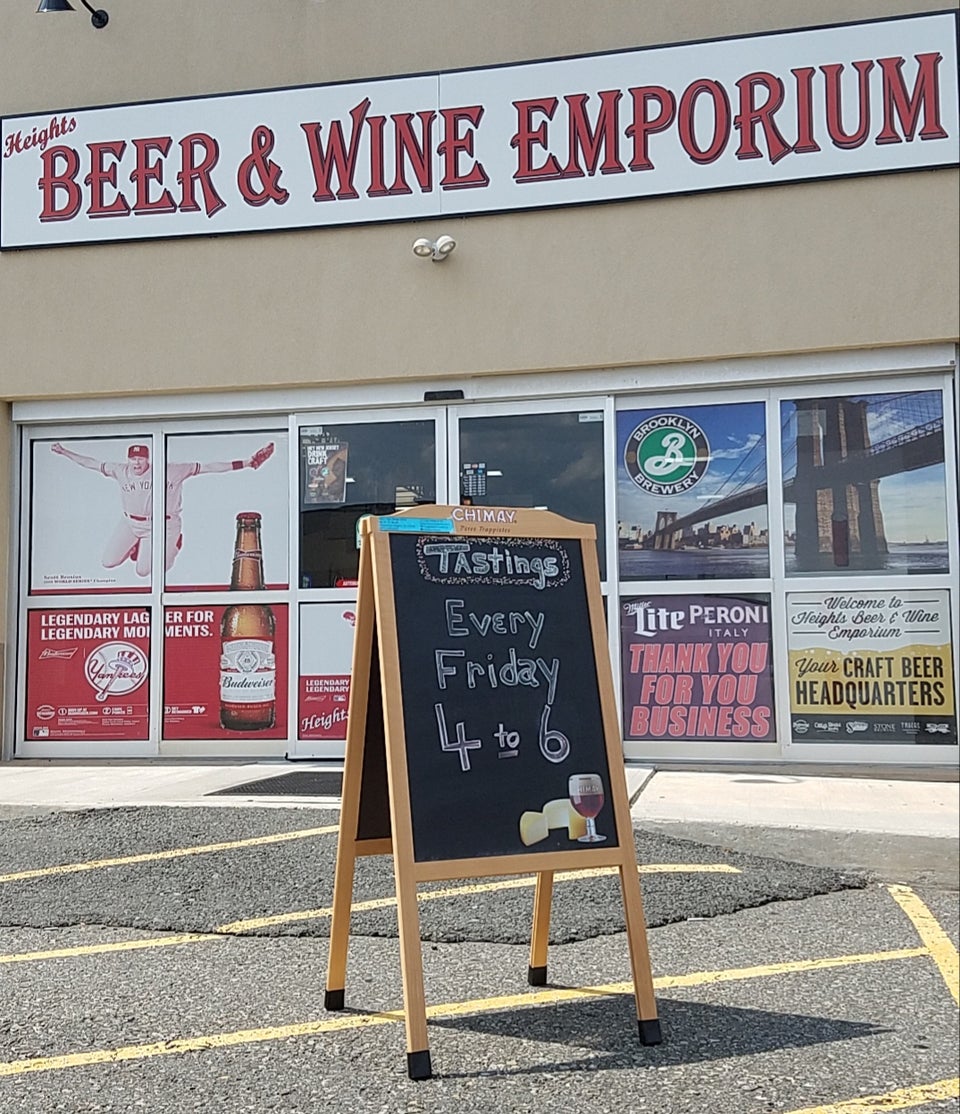 Heights
BEER & WINE EMPORIUM
NEW YORK
Scott Brosius
LEGENDARY LAGER FOR
LEGENDARY MOMENTS.
Budweiser
Yankees
Budweiser
DRINK
CRAFT
LEGENDARY
LEGENDARY
Heights
BROOKLYN
B
BREWERY
Miller
Lite PERONI
ITALY
THANK YOU
FOR YOU
BUSINESS
Welcome to
Heights Beer & Wine
Emporium
Your CRAFT BEER
HEADQUARTERS
STONE
CHIMAY
Pères Trappistes
TAstings
Every
Friday
4 to 6
CHIMAY